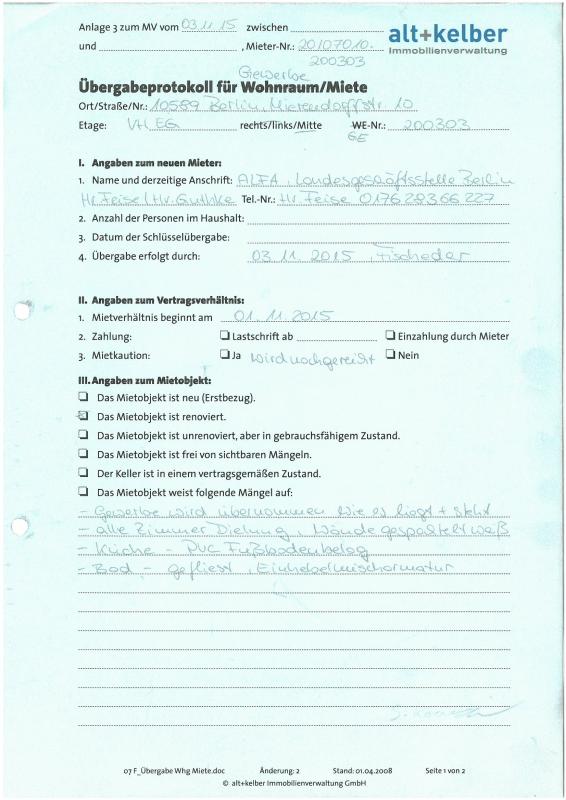 Anlage 3 zum MV vom 03.11.15 zwischen
alt+kelber
Immobilienverwaltung
und , Mieter-Nr.: 20107010.
200303
Gewerbe
Übergabeprotokoll für Wohnraum/Miete
Ort/Straße/Nr.: 10589 Berlin, Mierendorffstr. 10
Etage: VH EG rechts/links/Mitte WE-Nr.: 200303
GE
I. Angaben zum neuen Mieter:
1. Name und derzeitige Anschrift: ALFA, Landesgeschäftsstelle Berlin
Hr. Feise / Hr. Guthke Tel.-Nr.: Hr. Feise 0176 28366 227
2. Anzahl der Personen im Haushalt:
3. Datum der Schlüsselübergabe:
4. Übergabe erfolgt durch: 03.11.2015, Fischeder
II. Angaben zum Vertragsverhältnis:
1. Mietverhältnis beginnt am 01.11.2015
2. Zahlung: ☐ Lastschrift ab ☐ Einzahlung durch Mieter
3. Mietkaution: ☐ Ja wird nachgereicht ☐ Nein
III. Angaben zum Mietobjekt:
☐ Das Mietobjekt ist neu (Erstbezug).
☒ Das Mietobjekt ist renoviert.
☐ Das Mietobjekt ist unrenoviert, aber in gebrauchsfähigem Zustand.
☐ Das Mietobjekt ist frei von sichtbaren Mängeln.
☐ Der Keller ist in einem vertragsgemäßen Zustand.
☐ Das Mietobjekt weist folgende Mängel auf:
- Gewerbe wird übernommen wie es liegt + steht
- alle Zimmer Dielung, Wände gespachtelt weiß
- Küche - PVC Fußbodenbelag
- Bad - gefliest, Einhebelmischarmatur
07 F_Übergabe Whg Miete.doc Änderung: 2 Stand: 01.04.2008 Seite 1 von 2
© alt+kelber Immobilienverwaltung GmbH